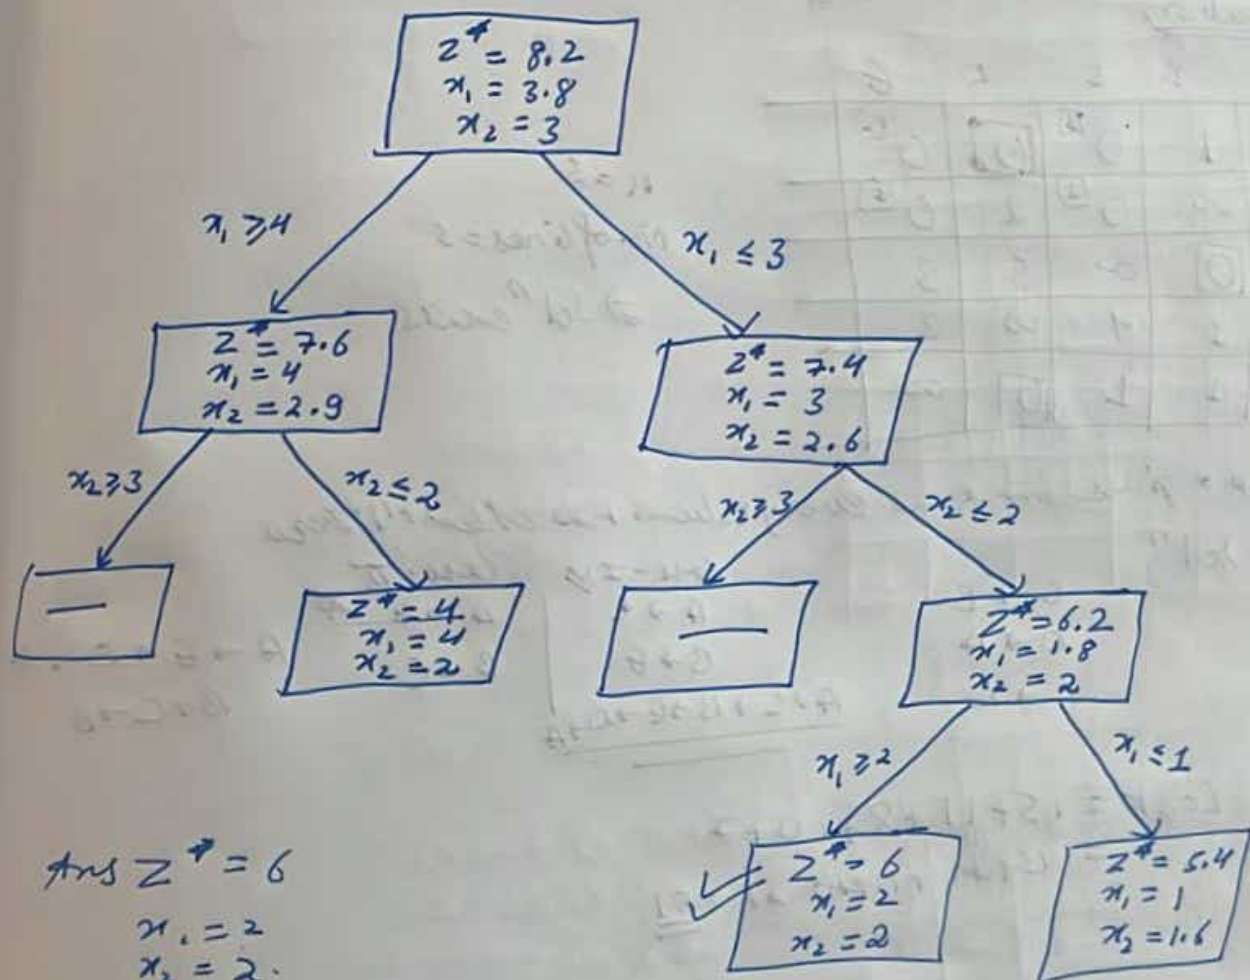 Z* = 8.2
x₁ = 3.8
x₂ = 3
x₁ ≥ 4
x₁ ≤ 3
Z* = 7.6
x₁ = 4
x₂ = 2.9
Z* = 7.4
x₁ = 3
x₂ = 2.6
x₂ ≥ 3
x₂ ≤ 2
x₂ ≥ 3
x₂ ≤ 2
—
Z* = 4
x₁ = 4
x₂ = 2
—
Z* = 6.2
x₁ = 1.8
x₂ = 2
x₁ ≥ 2
x₁ ≤ 1
Z* = 6
x₁ = 2
x₂ = 2
Z* = 5.4
x₁ = 1
x₂ = 1.6
Ans Z* = 6
x₁ = 2
x₂ = 2.